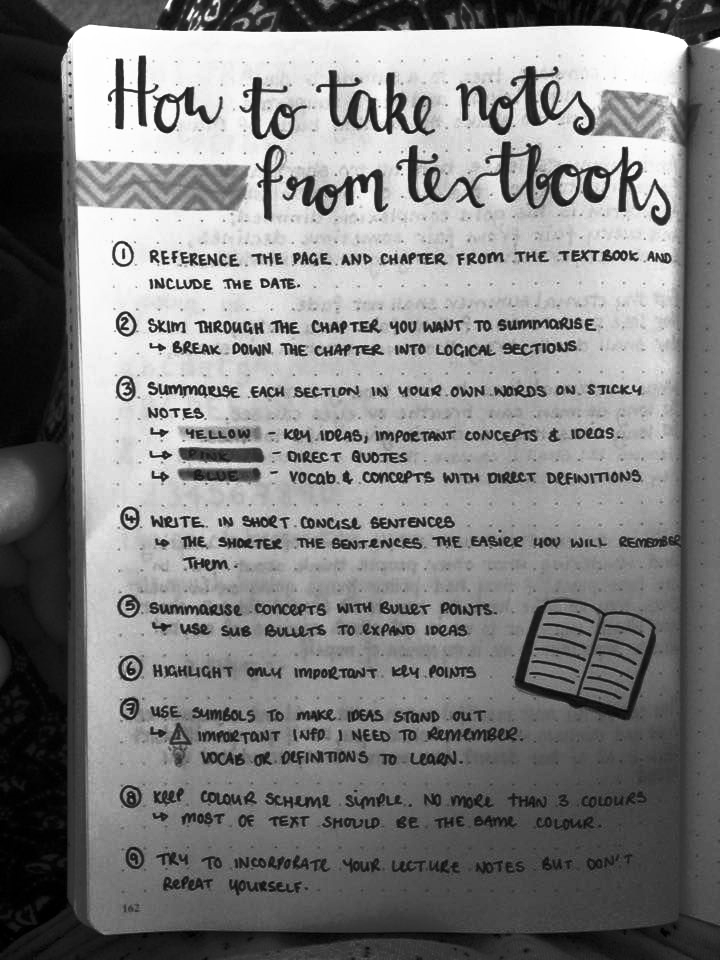 How to take notes
from textbooks
① REFERENCE THE PAGE AND CHAPTER FROM THE TEXTBOOK AND
INCLUDE THE DATE.
② SKIM THROUGH THE CHAPTER YOU WANT TO SUMMARISE.
↳ BREAK DOWN THE CHAPTER INTO LOGICAL SECTIONS
③ SUMMARISE EACH SECTION IN YOUR OWN WORDS ON STICKY
NOTES.
↳ YELLOW - KEY IDEAS, IMPORTANT CONCEPTS & IDEAS.
↳ PINK - DIRECT QUOTES
↳ BLUE - VOCAB & CONCEPTS WITH DIRECT DEFINITIONS
④ WRITE IN SHORT CONCISE SENTENCES
↳ THE SHORTER THE SENTENCES THE EASIER YOU WILL REMEMBER
THEM.
⑤ SUMMARISE CONCEPTS WITH BULLET POINTS.
↳ USE SUB BULLETS TO EXPAND IDEAS
⑥ HIGHLIGHT ONLY IMPORTANT KEY POINTS
⑦ USE SYMBOLS TO MAKE IDEAS STAND OUT
↳ ⚠ IMPORTANT INFO I NEED TO REMEMBER.
VOCAB OR DEFINITIONS TO LEARN.
⑧ KEEP COLOUR SCHEME SIMPLE. NO MORE THAN 3 COLOURS
↳ MOST OF TEXT SHOULD BE THE SAME COLOUR.
⑨ TRY TO INCORPORATE YOUR LECTURE NOTES BUT DON'T
REPEAT YOURSELF.
162